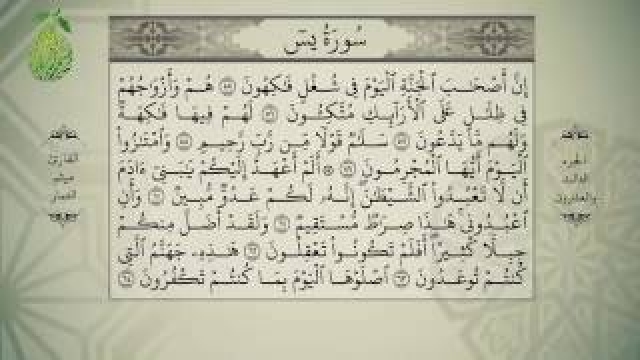 سُورَةُ يسٓ
إِنَّ أَصْحَٰبَ ٱلْجَنَّةِ ٱلْيَوْمَ فِى شُغُلٍ فَٰكِهُونَ ۝٥٥ هُمْ وَأَزْوَٰجُهُمْ
فِى ظِلَٰلٍ عَلَى ٱلْأَرَآئِكِ مُتَّكِـُٔونَ ۝٥٦ لَهُمْ فِيهَا فَٰكِهَةٌ
وَلَهُم مَّا يَدَّعُونَ ۝٥٧ سَلَٰمٌ قَوْلًا مِّن رَّبٍّ رَّحِيمٍ ۝٥٨ وَٱمْتَٰزُوا۟
ٱلْيَوْمَ أَيُّهَا ٱلْمُجْرِمُونَ ۝٥٩ ۞ أَلَمْ أَعْهَدْ إِلَيْكُمْ يَٰبَنِىٓ ءَادَمَ
أَن لَّا تَعْبُدُوا۟ ٱلشَّيْطَٰنَ إِنَّهُۥ لَكُمْ عَدُوٌّ مُّبِينٌ ۝٦٠ وَأَنِ
ٱعْبُدُونِى هَٰذَا صِرَٰطٌ مُّسْتَقِيمٌ ۝٦١ وَلَقَدْ أَضَلَّ مِنكُمْ
جِبِلًّا كَثِيرًا أَفَلَمْ تَكُونُوا۟ تَعْقِلُونَ ۝٦٢ هَٰذِهِۦ جَهَنَّمُ ٱلَّتِى
كُنتُمْ تُوعَدُونَ ۝٦٣ ٱصْلَوْهَا ٱلْيَوْمَ بِمَا كُنتُمْ تَكْفُرُونَ ۝٦٤
الجزء
الثالث
والعشرون
القارئ